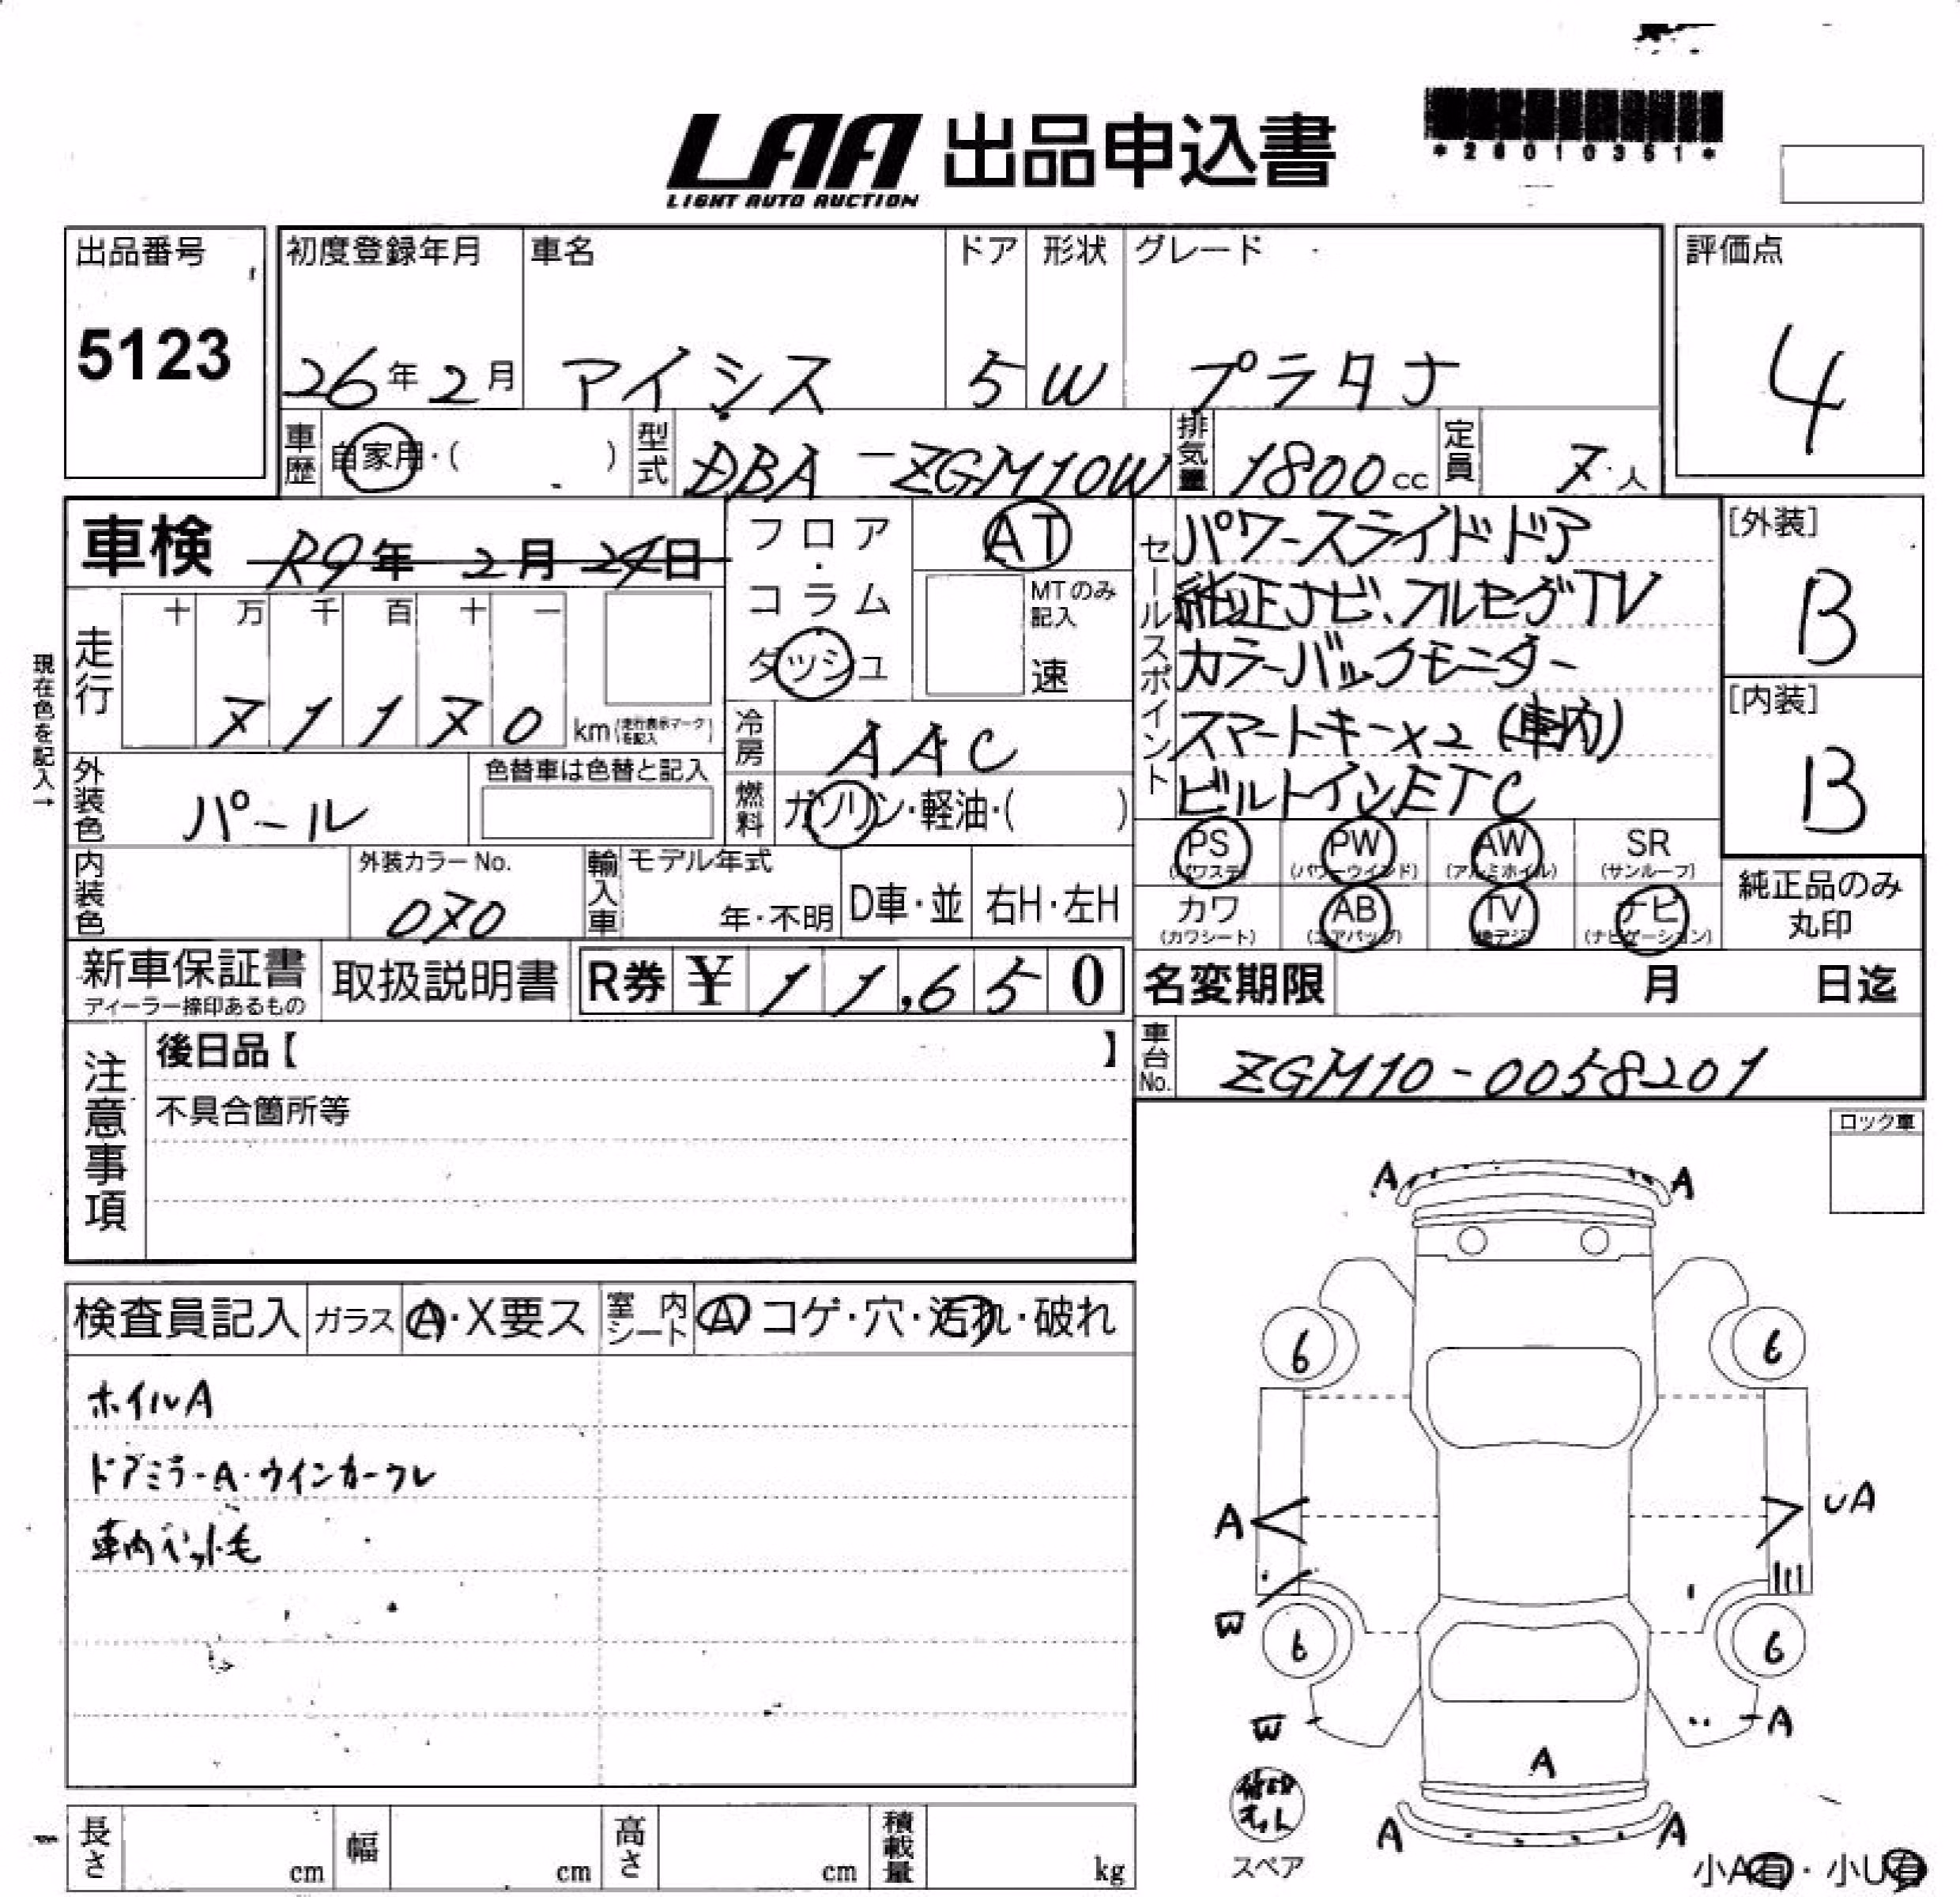 *26010351*
LAA 出品申込書
LIGHT AUTO AUCTION
出品番号 初度登録年月 車名 ドア 形状 グレード 評価点
5123 26年2月 アイシス 5 W プラタナ 4
車歴 自家用・( ) 型式 DBA-ZGM10W 排気量 1800cc 定員 7人
車検 R9年 2月 24日
フロア・コラム
ダッシュ
AT
MTのみ記入
速
セールスポイント
パワースライドドア
純正ナビ、フルセグTV
カラーバックモニター
スマートキーx2(車内)
ビルトインETC
[外装]
B
[内装]
B
現在色を記入→
走行 十 万 千 百 十 一
71170 km(走行表示マークを記入)
冷房 AAC
外装色 パール 色替車は色替と記入
燃料 ガソリン・軽油・( )
PS (パワステ) PW (パワーウインド) AW (アルミホイル) SR (サンルーフ)
カワ (カワシート) AB (エアバッグ) TV (地デジ) ナビ (ナビゲーション)
純正品のみ
丸印
内装色 外装カラーNo. 070 輸入車 モデル年式 年・不明 D車・並 右H・左H
新車保証書 取扱説明書 R券 ¥11,650
ディーラー捺印あるもの
名変期限 月 日迄
車台No. ZGM10-0058201
注意事項
後日品【 】
不具合箇所等
ロック車
検査員記入 ガラス A・X要ス 室内シート A コゲ・穴・汚れ・破れ
ホイルA
ドアミラーA・ウインカーワレ
車内ペット毛
A A
6 6
A UA
W
6 6
W A
A
A A
スペア
小A有・小U有
長さ cm 幅 cm 高さ cm 積載量 kg